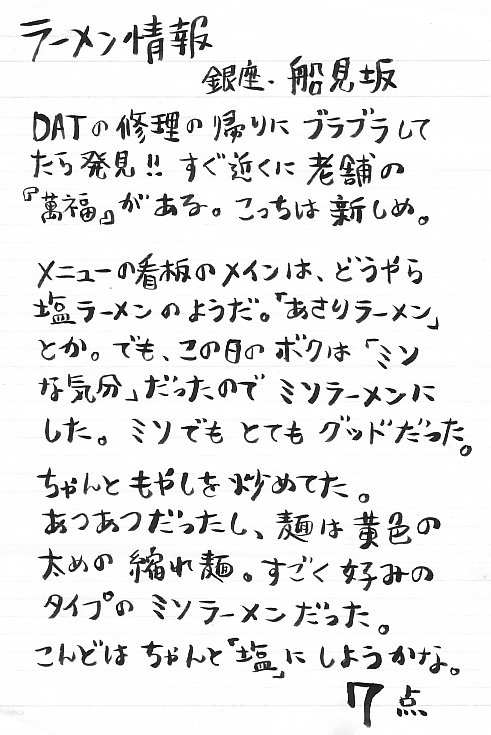 ラーメン情報
銀座・船見坂
DATの修理の帰りにブラブラして
たら発見!! すぐ近くに老舗の
『萬福』がある。こっちは新しめ。
メニューの看板のメインは、どうやら
塩ラーメンのようだ。「あさりラーメン」
とか。でも、この日のボクは「ミソ
な気分」だったのでミソラーメンに
した。ミソでもとてもグッドだった。
ちゃんともやしを炒めてた。
あつあつだったし、麺は黄色の
太めの縮れ麺。すごく好みの
タイプのミソラーメンだった。
こんどはちゃんと「塩」にしようかな。
7点